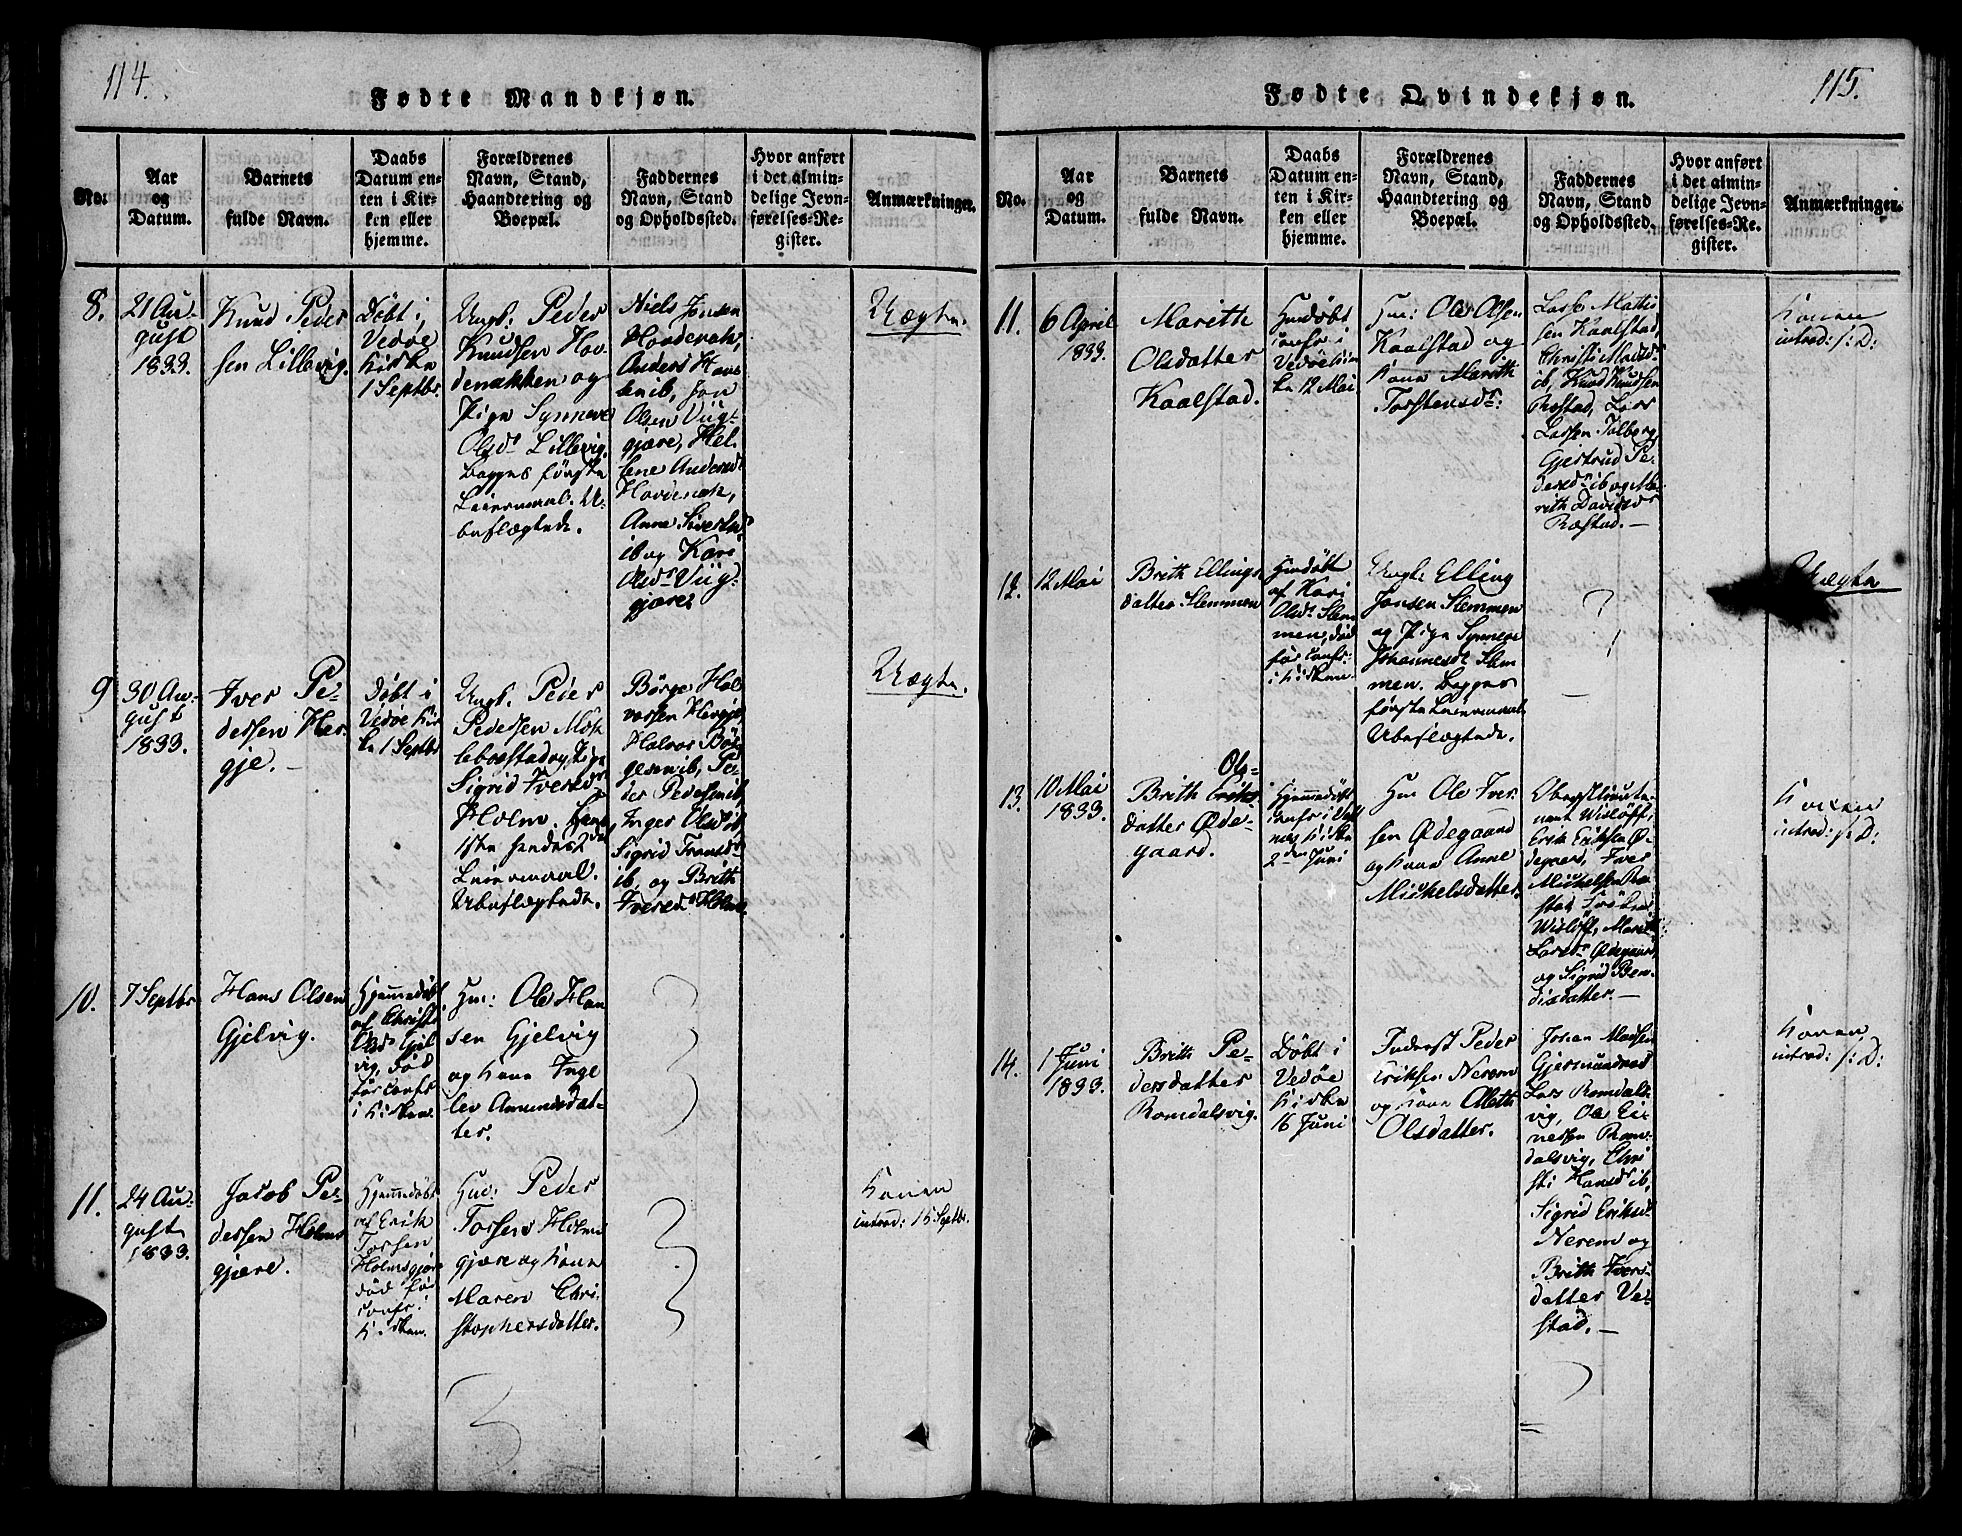 114.
Fødte Mandkjøn.
No.
Aar
og
Datum.
Barnets
fulde Navn.
Daabs
Datum en-
ten i Kir-
ken eller
hjemme.
Forældrenes
Navn, Stand,
Haandtering og
Boepæl.
Faddernes
Navn, Stand
og Opholdssted.
Hvor anført
i det almin-
delige Jevn-
førelses-Re-
gister.
Anmærkninger.
8.
21 Au-
gust
1833.
Knud Peder
sen Lillevig.
Døbt i
Vedøe
Kirke
1 Septbr.
Ungk: Peder
Knudsen Hov-
denakken og
Pige Synneve
Olsdr Lillevig.
Begges første
Leiermaal. U-
beslægtede.
Niels Jonsen
Hovdenak,
Anders
ib, Jon
Olsen Viig-
gjære, Hel-
lene Andersdr
Hovdenak,
Anne Sivertsdr
ib og Kari
Olsdr Viig-
gjære
Uægte.
9
30 Au-
gust
1833.
Iver Pe-
dersen Her-
gje.
Døbt i
Vedøe Kir
ke 1 Septbr
Ungk. Peder
Pedersen Mek
lebostad og Pige
Sigrid Iversdr
Holm. Hans
1ste hendes 2det
Leiermaal.
Ubeslægtede.
Børge Hal
vorsen Hergje,
Halvor Bør
gesen ib, Pe-
der Pedersen ib,
Inger Olsdr ib,
Sigrid
ib, og Brith
Iversdr Holm.
Uægte.
10.
7 Septbr
Hans Olsen
Gjelvig.
Hjemmedøbt
af Christi
Olsdr Gjel
vig, død
før confr
i Kirken.
Hm: Ole Han
sen Gjelvig
og Kone Inge
lev Amundsdat-
ter.
11.
24 Au-
gust
1833.
Jacob Pe-
dersen Holms
gjære.
Hjemmedøbt
af Erik
Torsen
Holmsgjære
død før
confr. i
Kirken.
Hm: Peder
Torsen Holms
gjære og Kone
Maren Chri-
stophersdatter.
Konen
introd: 15 Septbr.
115.
Fødte Qvindekjøn.
No.
Aar
og
Datum.
Barnets
fulde Navn.
Daabs
Datum en-
ten i Kir-
ken eller
hjemme.
Forældrenes
Navn, Stand,
Haandtering og
Boepæl.
Faddernes
Navn, Stand
og Opholdssted.
Hvor anført
i det almin-
delige Jevn-
førelses-Re-
gister.
Anmærkninger.
11.
6 April
1833.
Marith
Olsdatter
Kaalstad.
Hmdøbt
confr: i
Vedøe Kir
ke 12 Mai
Hm: Ole Olsen
Kaalstad og
Kone Marith
Torstensdr:
Lars Mathi
sen Kaalstad,
Christi
ib, Knud Knudsen
Røstad, Lars
Larsen Tolberg
Gjertrud Pe-
dersdr ib og Ma-
rith Davidsdr
Røstad.
Konen
introd: s: D:
12.
12 Mai
Brith Ellings
datter Slemmen
Hmdøbt
af Kari
Olsdr Slem
men, død
før confr:
i Kirken.
Ungk: Elling
Jonsen Slemmen
og Pige Synneve
Johannesdr Slem
men. Begges
første Leiermaal
Ubeslægtede.
Uægte
13.
10 Mai
1833.
Ols-
Brith Eriks
datter Øde-
gaard.
Hjemmedøbt
confr i
Kirke
2den Juni
Hm Ole Iver
sen Ødegaard
og Kone Anne
Mickelsdatter.
Oberstlieute-
nant Wisløff,
Erik Eriksen Ø-
degaard, Iver
Mickelsen
Frøken
Wisløff, Marith
Larsdr Ødegaard
og Sigrid Ben-
dixdatter.
Konen
introd: s: D:
14.
1 Juni
1833.
Brith Pe-
dersdatter
Romdalsvig.
Døbt i
Vedøe
Kirke
16 Juni
Inderst Peder
Eriksen Nerem
og Kone Marith
Olsdatter.
Johan Madsen
Gjermundnes
Lars Romdals-
vig, Ole Ei-
nersen Rom-
dalsvig, Chri
sti Hansdr ib,
Sigrid Eriksdr
Nerem og
Brith Ivers-
datter Ve-
stad.
Konen
introd: s: D: